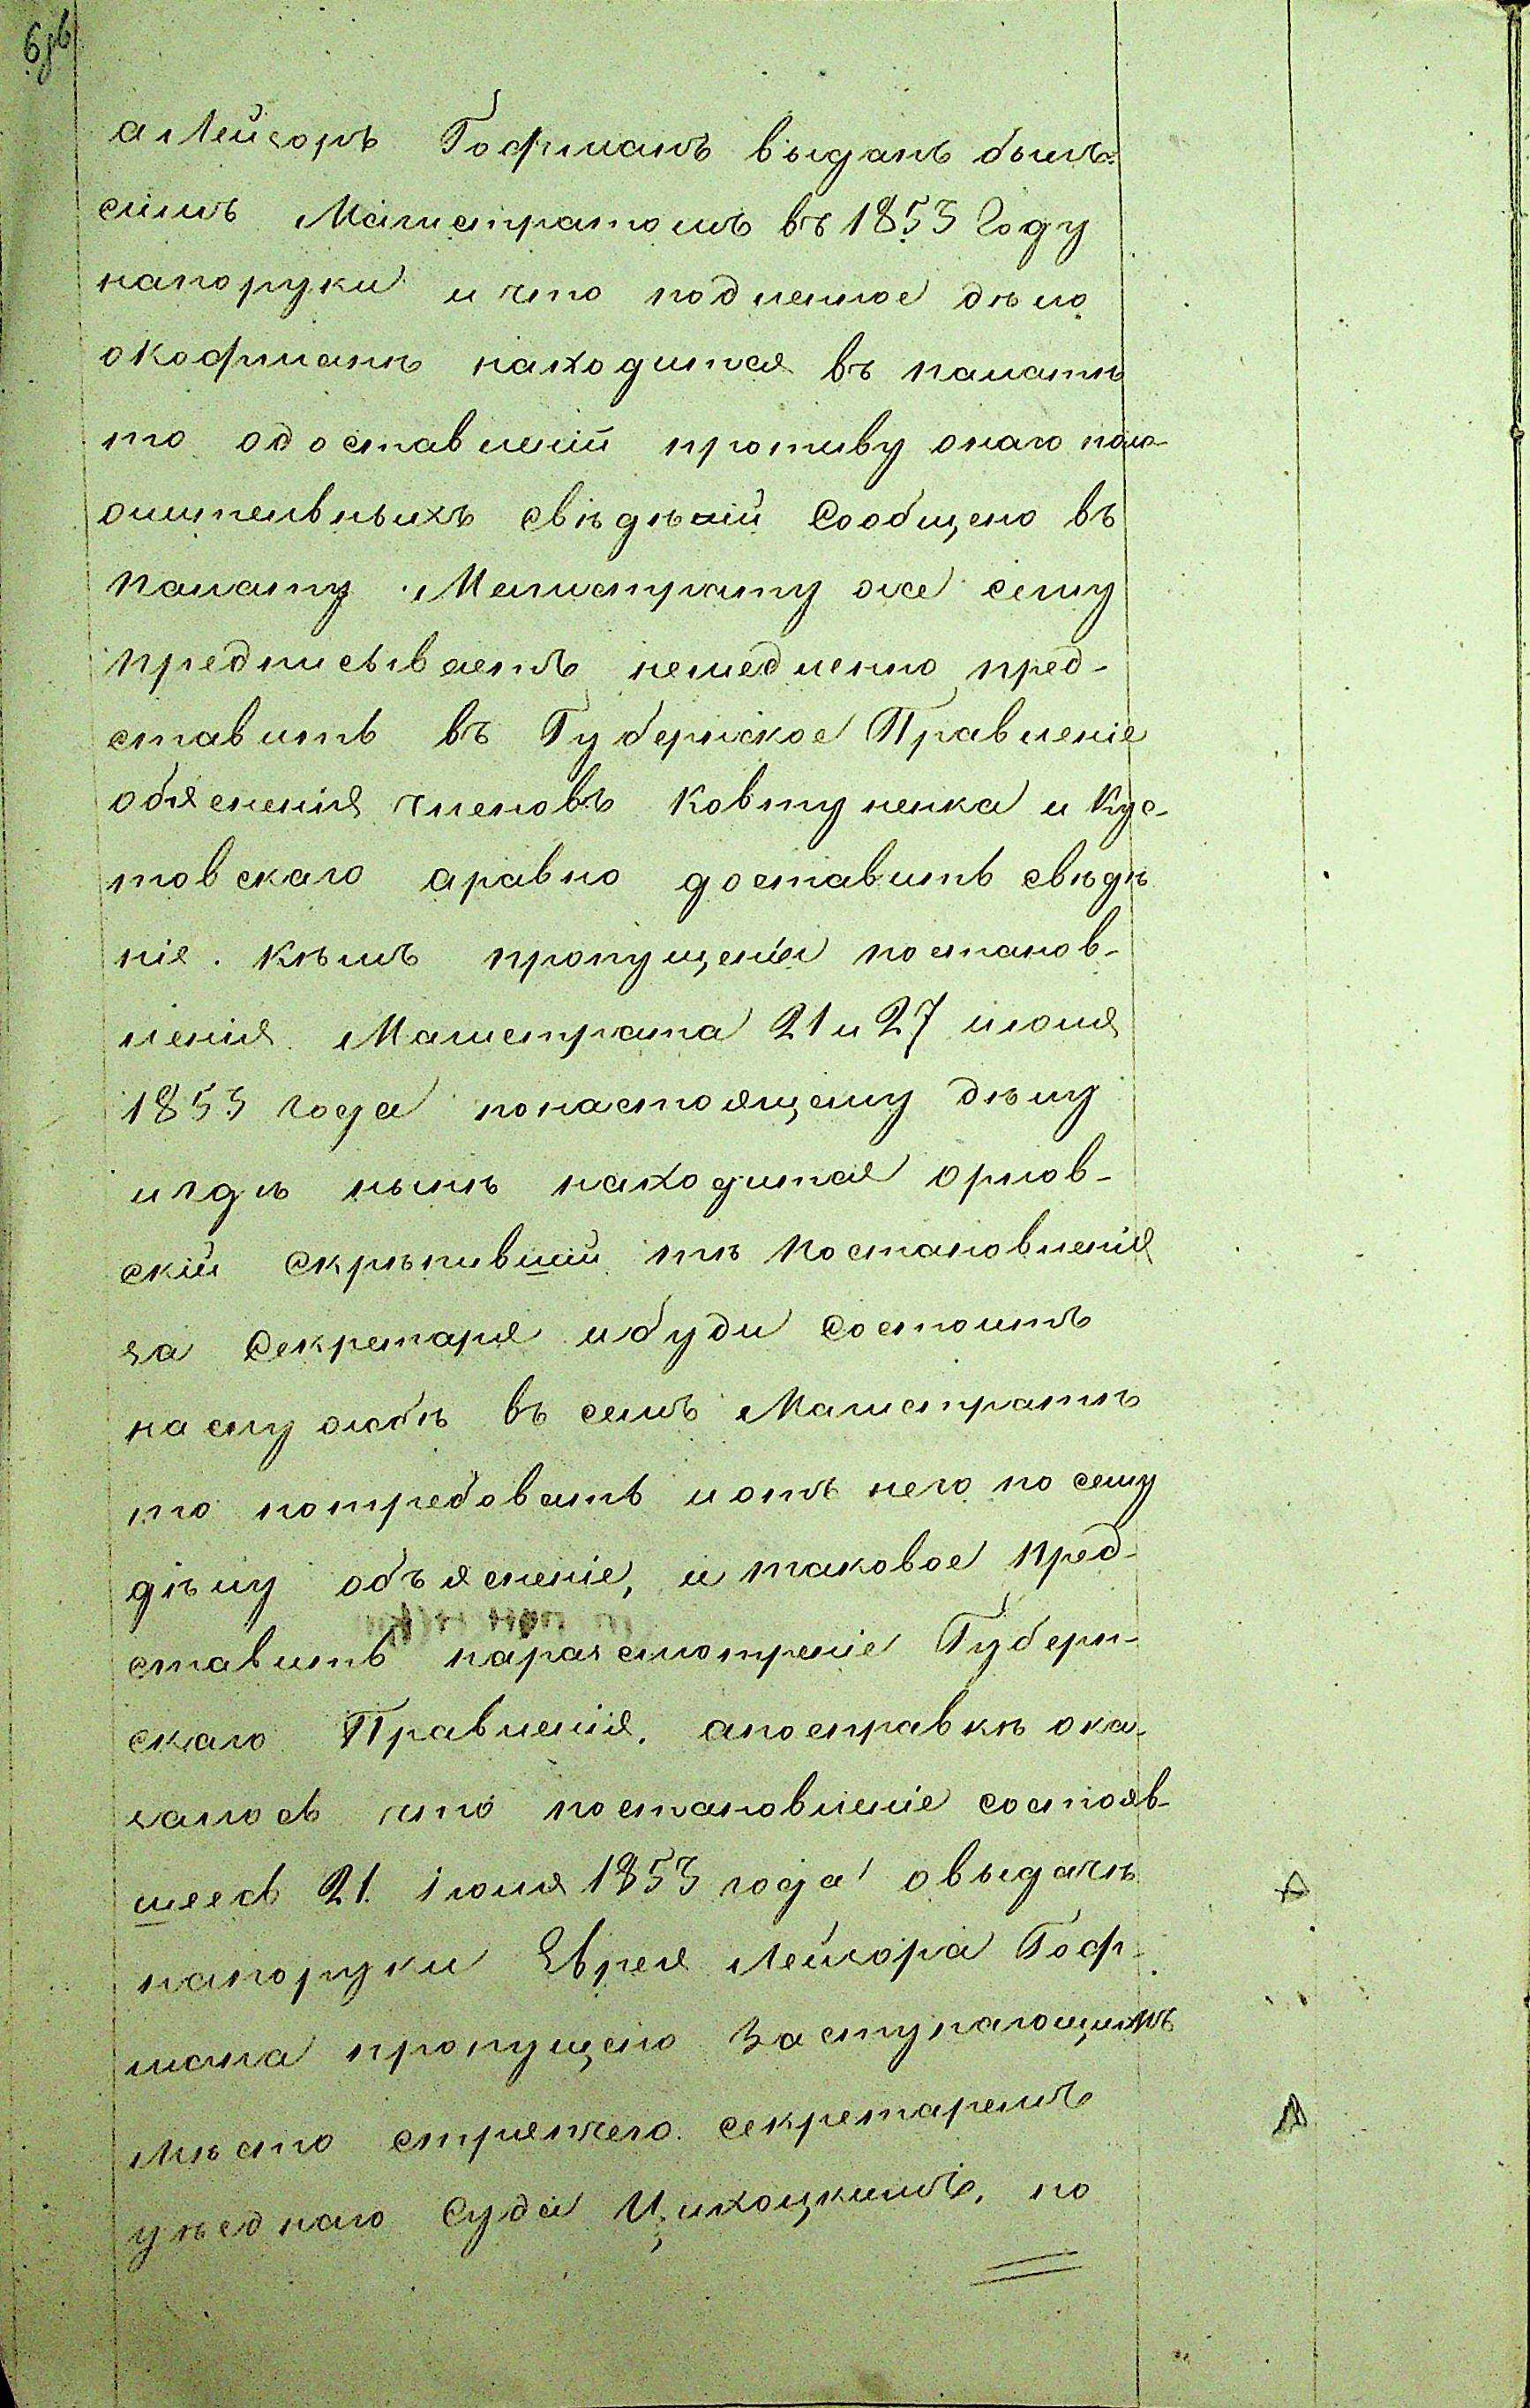 а Лейзоръ Гофманъ выданъ былъ
симъ Магистратомъ въ 1853 Году
напоруки и что подленное дѣло
о Кофманѣ находится въ палатѣ
то одоставленiй противу онаго поло-
жительныхъ свѣдѣнiй Сообщено въ
палату Магистрату же сему
предписываетъ немедленно пред-
ставить въ Губернское Правленiе
обясненiя членовъ Ковтуненка и Кус-
товскаго аравно доставить свѣдѣ
нiе. Кѣмъ пропущенiи постанов-
ленiя Магистрата 21 и 27 июня
1853 года понастоящему дѣлу
игдѣ нынѣ находится Орлов-
скiй Скрѣпившiй тѣ Постановленiя
за Секретаря ибуди Состоитъ
наслужбѣ въ семъ Магистратѣ
то потребовать иотъ него по сему
дѣлу объясненiе, и таковое Пред-
ставить наразсмотренiе Губерн-
скаго Правленiя. апосправкѣ ока-
залось что постановленiе состояв-
шеесь 21 Iюня 1853 года овыдачѣ
напоруки Еврея Лейзора Гоф-
мана пропущено Заступающимъ
Мѣсто стряпчего Секретаремъ
уѣеднаго Суда Цихоцкимъ, по